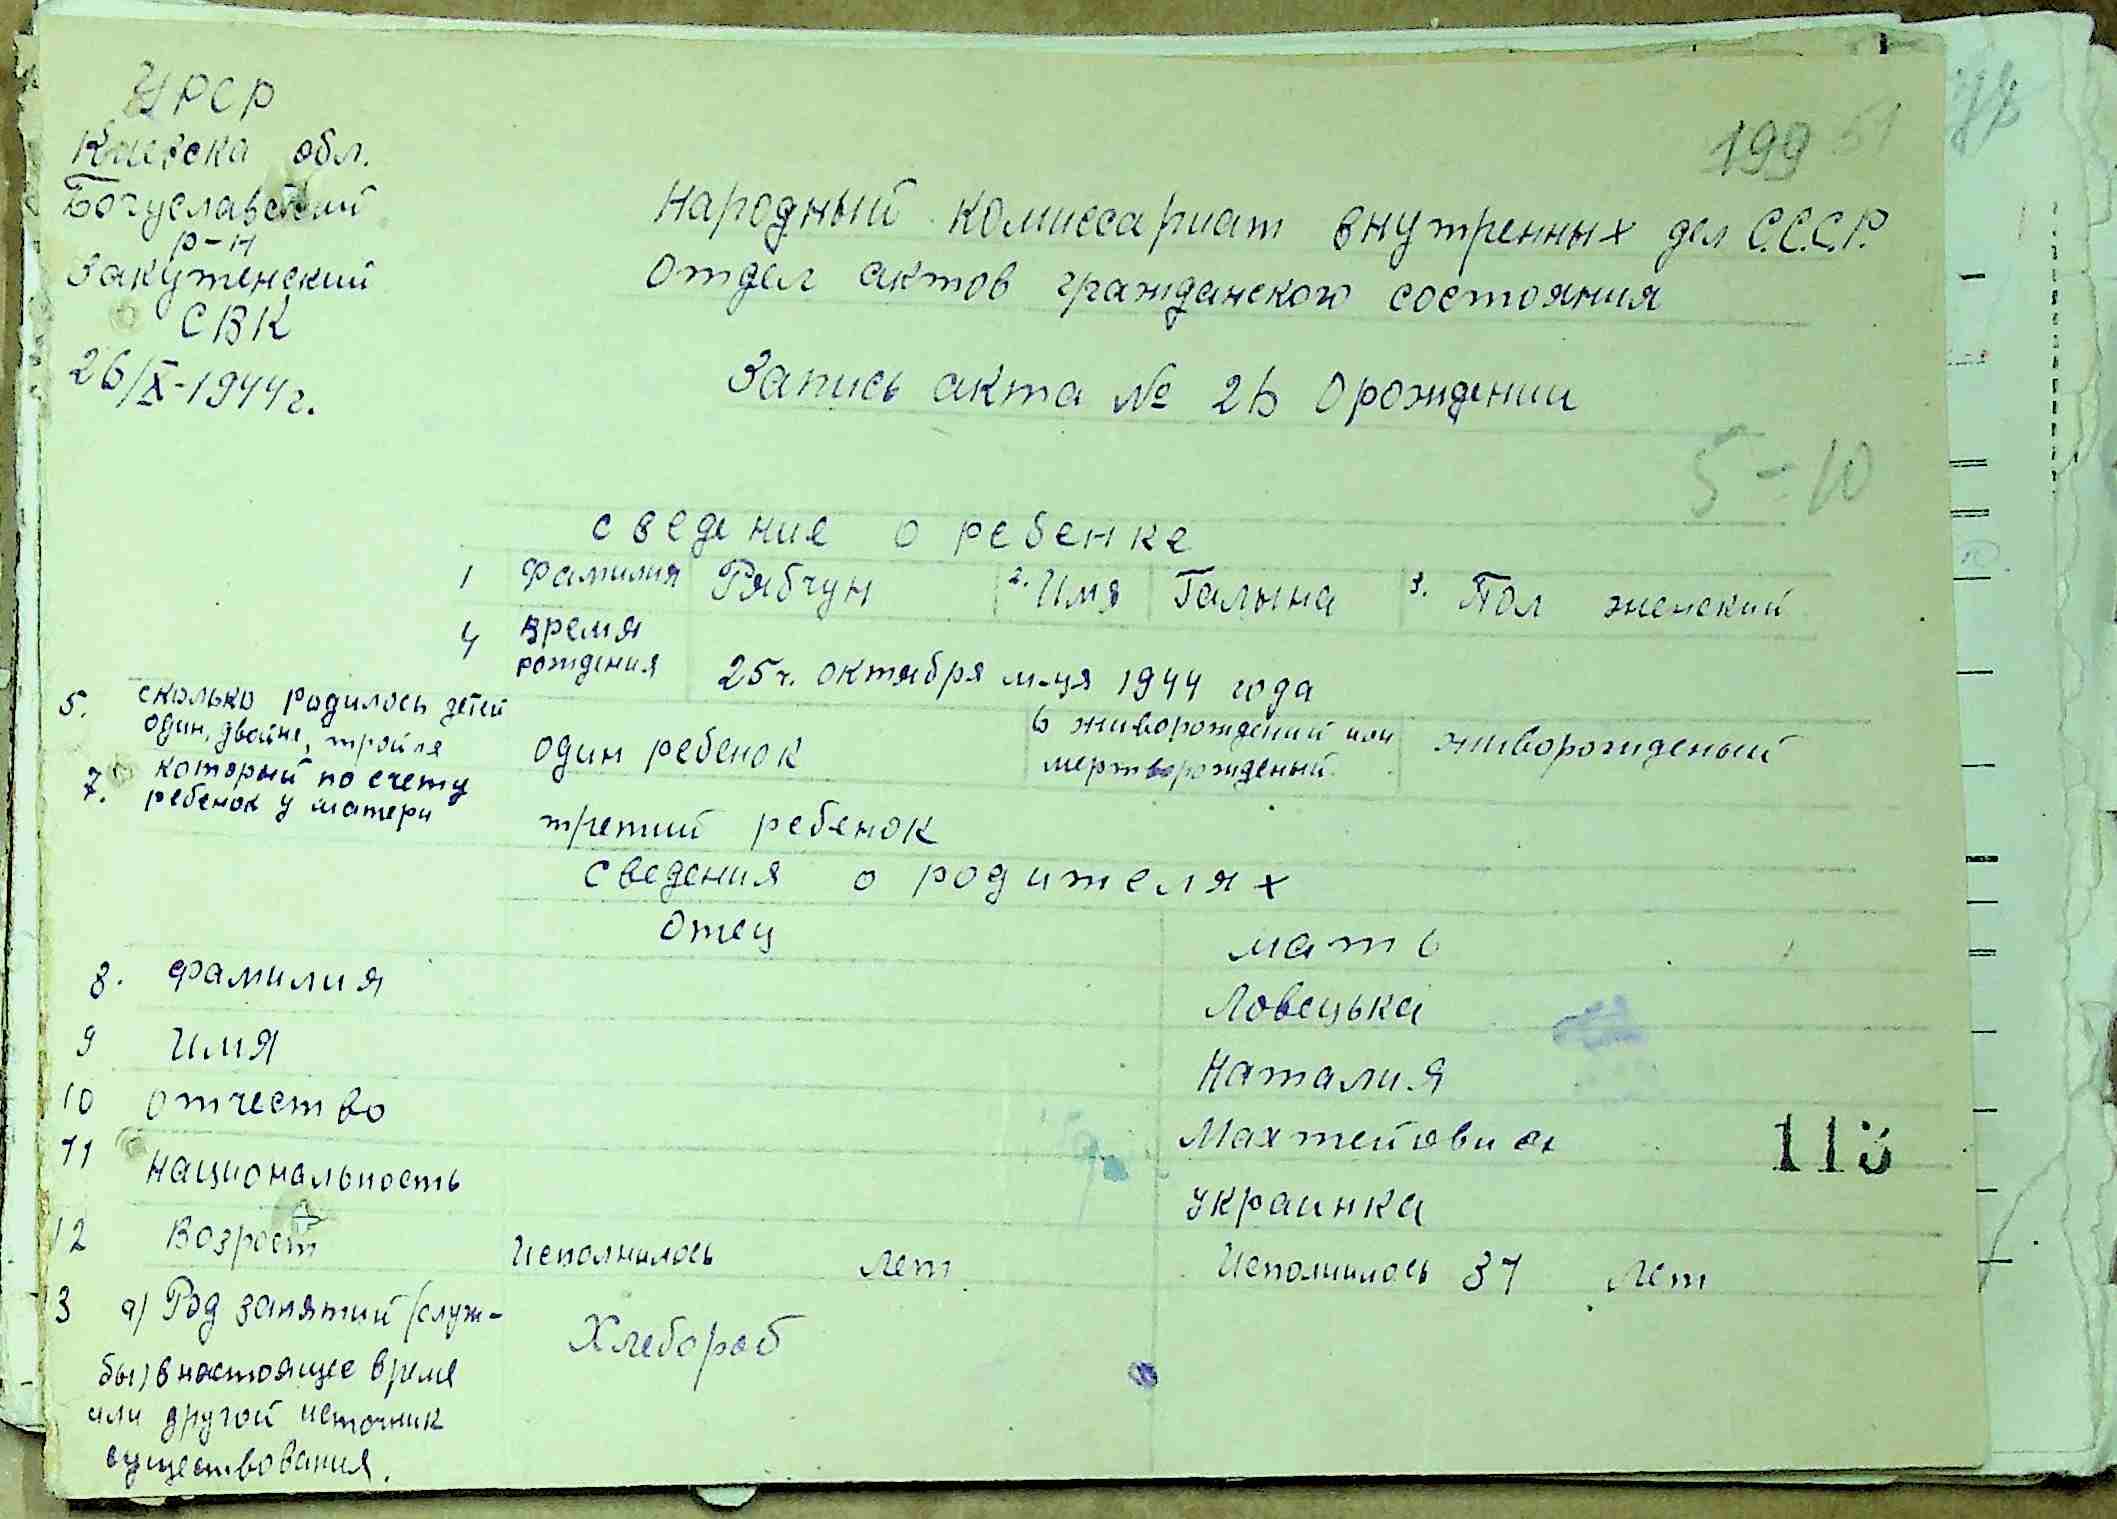 УРСР
Киевска обл.
Богуславский
р-н
Закутенский
СВК
26/X-1944г.
199 51
Народный комиссариат внутренных дел С.С.С.Р.
Отдел актов гражданского состояния
Запись акта № 26 о рождении
5-10
сведение о ребенке
1 Фамилия Рябчун 2. Имя Галына 3. Пол женский
4 время рождения 25ч. октября м-ця 1944 года
5. сколько родилось детей
один, двойне, тройля один ребенок 6 живорожденый или мертворожденый живорожденый
7. который по счету
ребенок у матери третий ребенок
сведения о родителях
Отец мать
8. Фамилия Ловецька
9 Имя Наталия
10 отчество
113
11 Национальность украинка
12 Возрост Исполнилось лет Исполнилось 37 лет
3 а) Род занятий (служ-
бы) в настоящее время Хлебороб
или другой источник
существования.